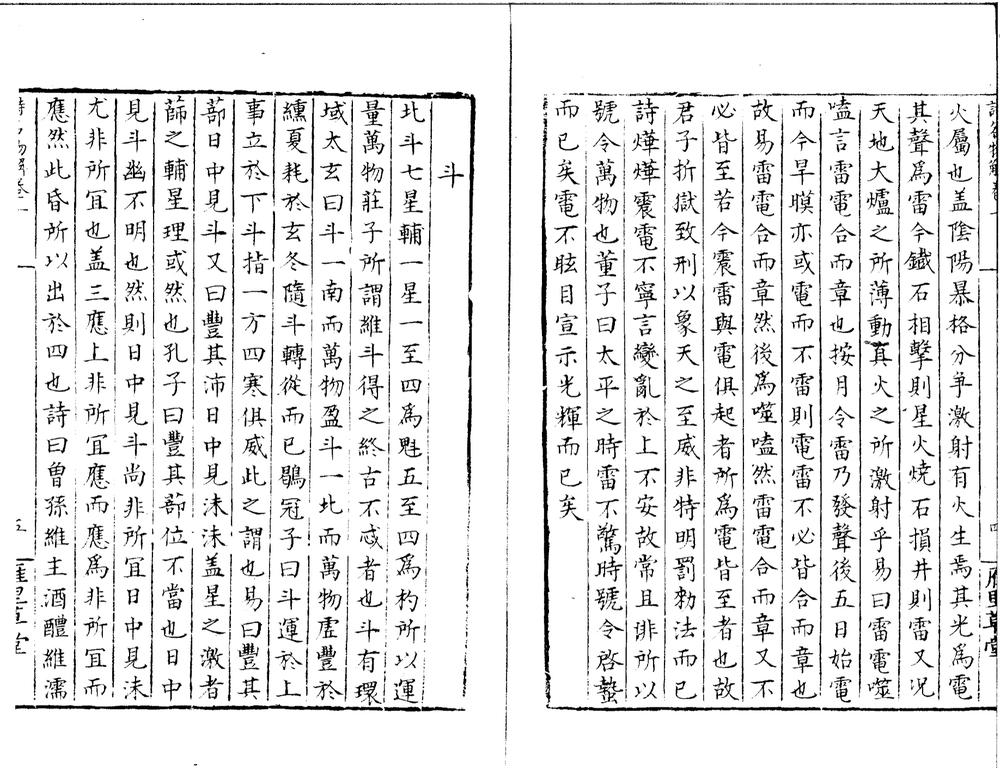 火屬也盖陰陽暴格分爭激射有火生焉其光爲電
其聲爲雷今鐵石相擊則星火燒石損井則雷又况
天地大爐之所薄動真火之所激射乎易曰雷電噬
嗑言雷電合而章也按月令雷乃發聲後五日始電
而今旱暵亦或電而不雷則電雷不必皆合而章也
故易雷電合而章然後爲噬嗑然雷電合而章又不
必皆至若今震雷與電俱起者所爲電皆至者也故
君子折獄致刑以象天之至威非特明罰勑法而已
詩爗爗震電不寧言變亂於上不安故常且非所以
號令萬物也董子曰太平之時雷不驚時號令啓蟄
而已矣電不眩目宣示光輝而已矣
斗
北斗七星輔一星一至四爲魁五至四爲杓所以運
量萬物莊子所謂維斗得之終古不忒者也斗有環
域太玄曰斗一南而萬物盈斗一北而萬物虛豐於
纁夏耗於玄冬隨斗轉從而已鶡冠子曰斗運於上
事立於下斗指一方四寒俱威此之謂也易曰豐其
蔀日中見斗又曰豐其沛日中見沬沬盖星之激者
蔀之輔星理或然也孔子曰豐其蔀位不當也日中
見斗幽不明也然則日中見斗尚非所宜日中見沬
尤非所宜也盖三應上非所宜應而應爲非所宜而
應然此昏所以出於四也詩曰曾孫維主酒醴維濡
五